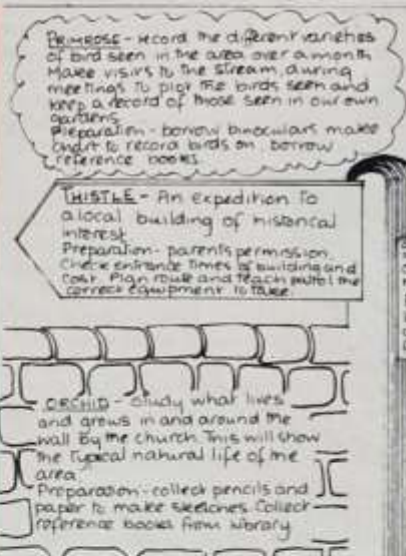 PRIMROSE - record the different varieties
of bird seen in the area over a month
Make visits to the stream, during
meetings to plot the birds seen and
keep a record of those seen in our own
gardens
Preparation - borrow binoculars make
chart to record birds on borrow
reference books.
THISTLE - An expedition to
a local building of historical
interest
Preparation - parents permission.
Check entrance times of building and
cost. Plan route and teach patrol the
correct equipment to take.
ORCHID - Study what lives
and grows in and around the
wall by the church. This will show
the typical natural life of the
area
Preparation - collect pencils and
paper to make sketches. Collect
reference books from library